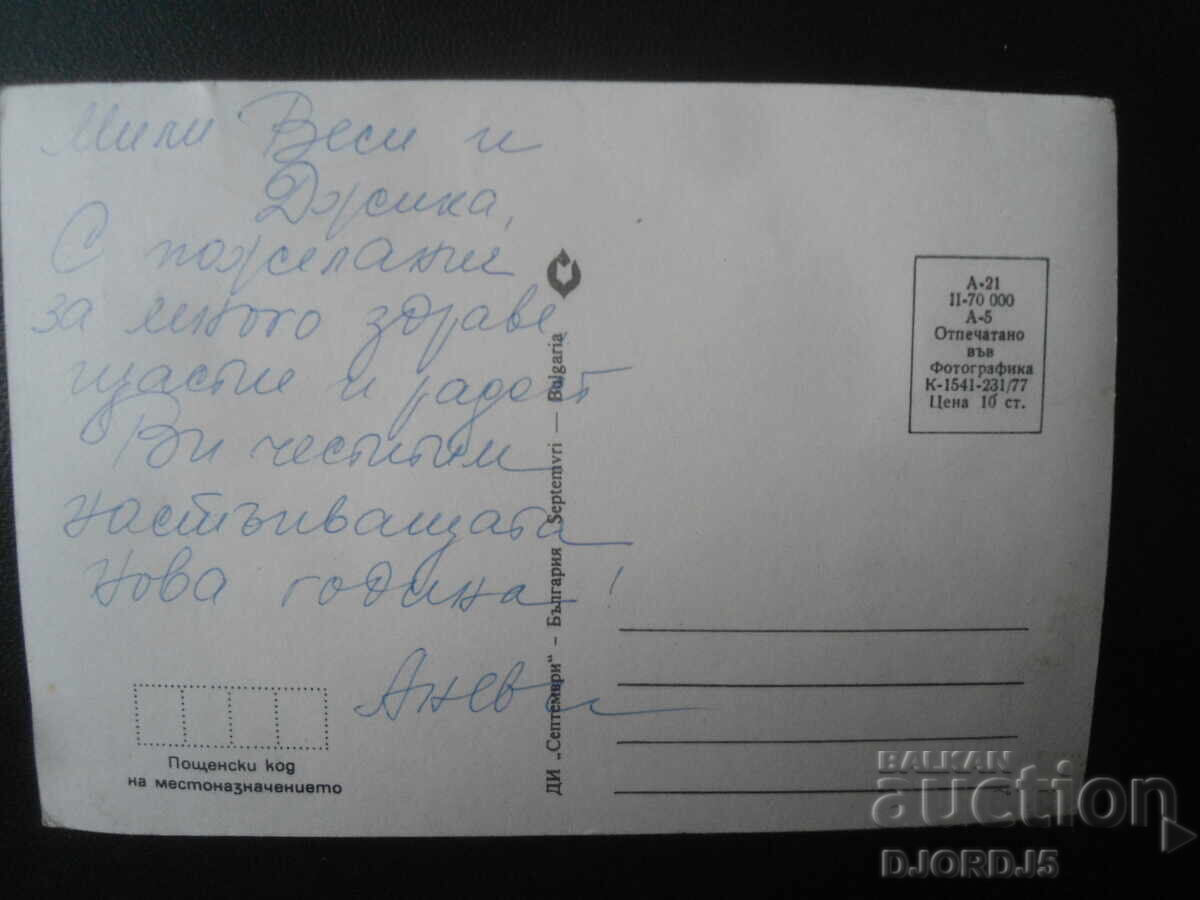 Мили Веси и
Джсика,
С пожелания
за много здраве
щастие и радост
Ви честитим
настъпващата
Нова година!
Аневи
Пощенски код
на местоназначението
ДИ „Септември" – България Septemvri — Bulgaria
А-21
II-70 000
А-5
Отпечатано
във
Фотографика
К-1541-231/77
Цена 10 ст.
BALKAN
auction
DJORDJ5